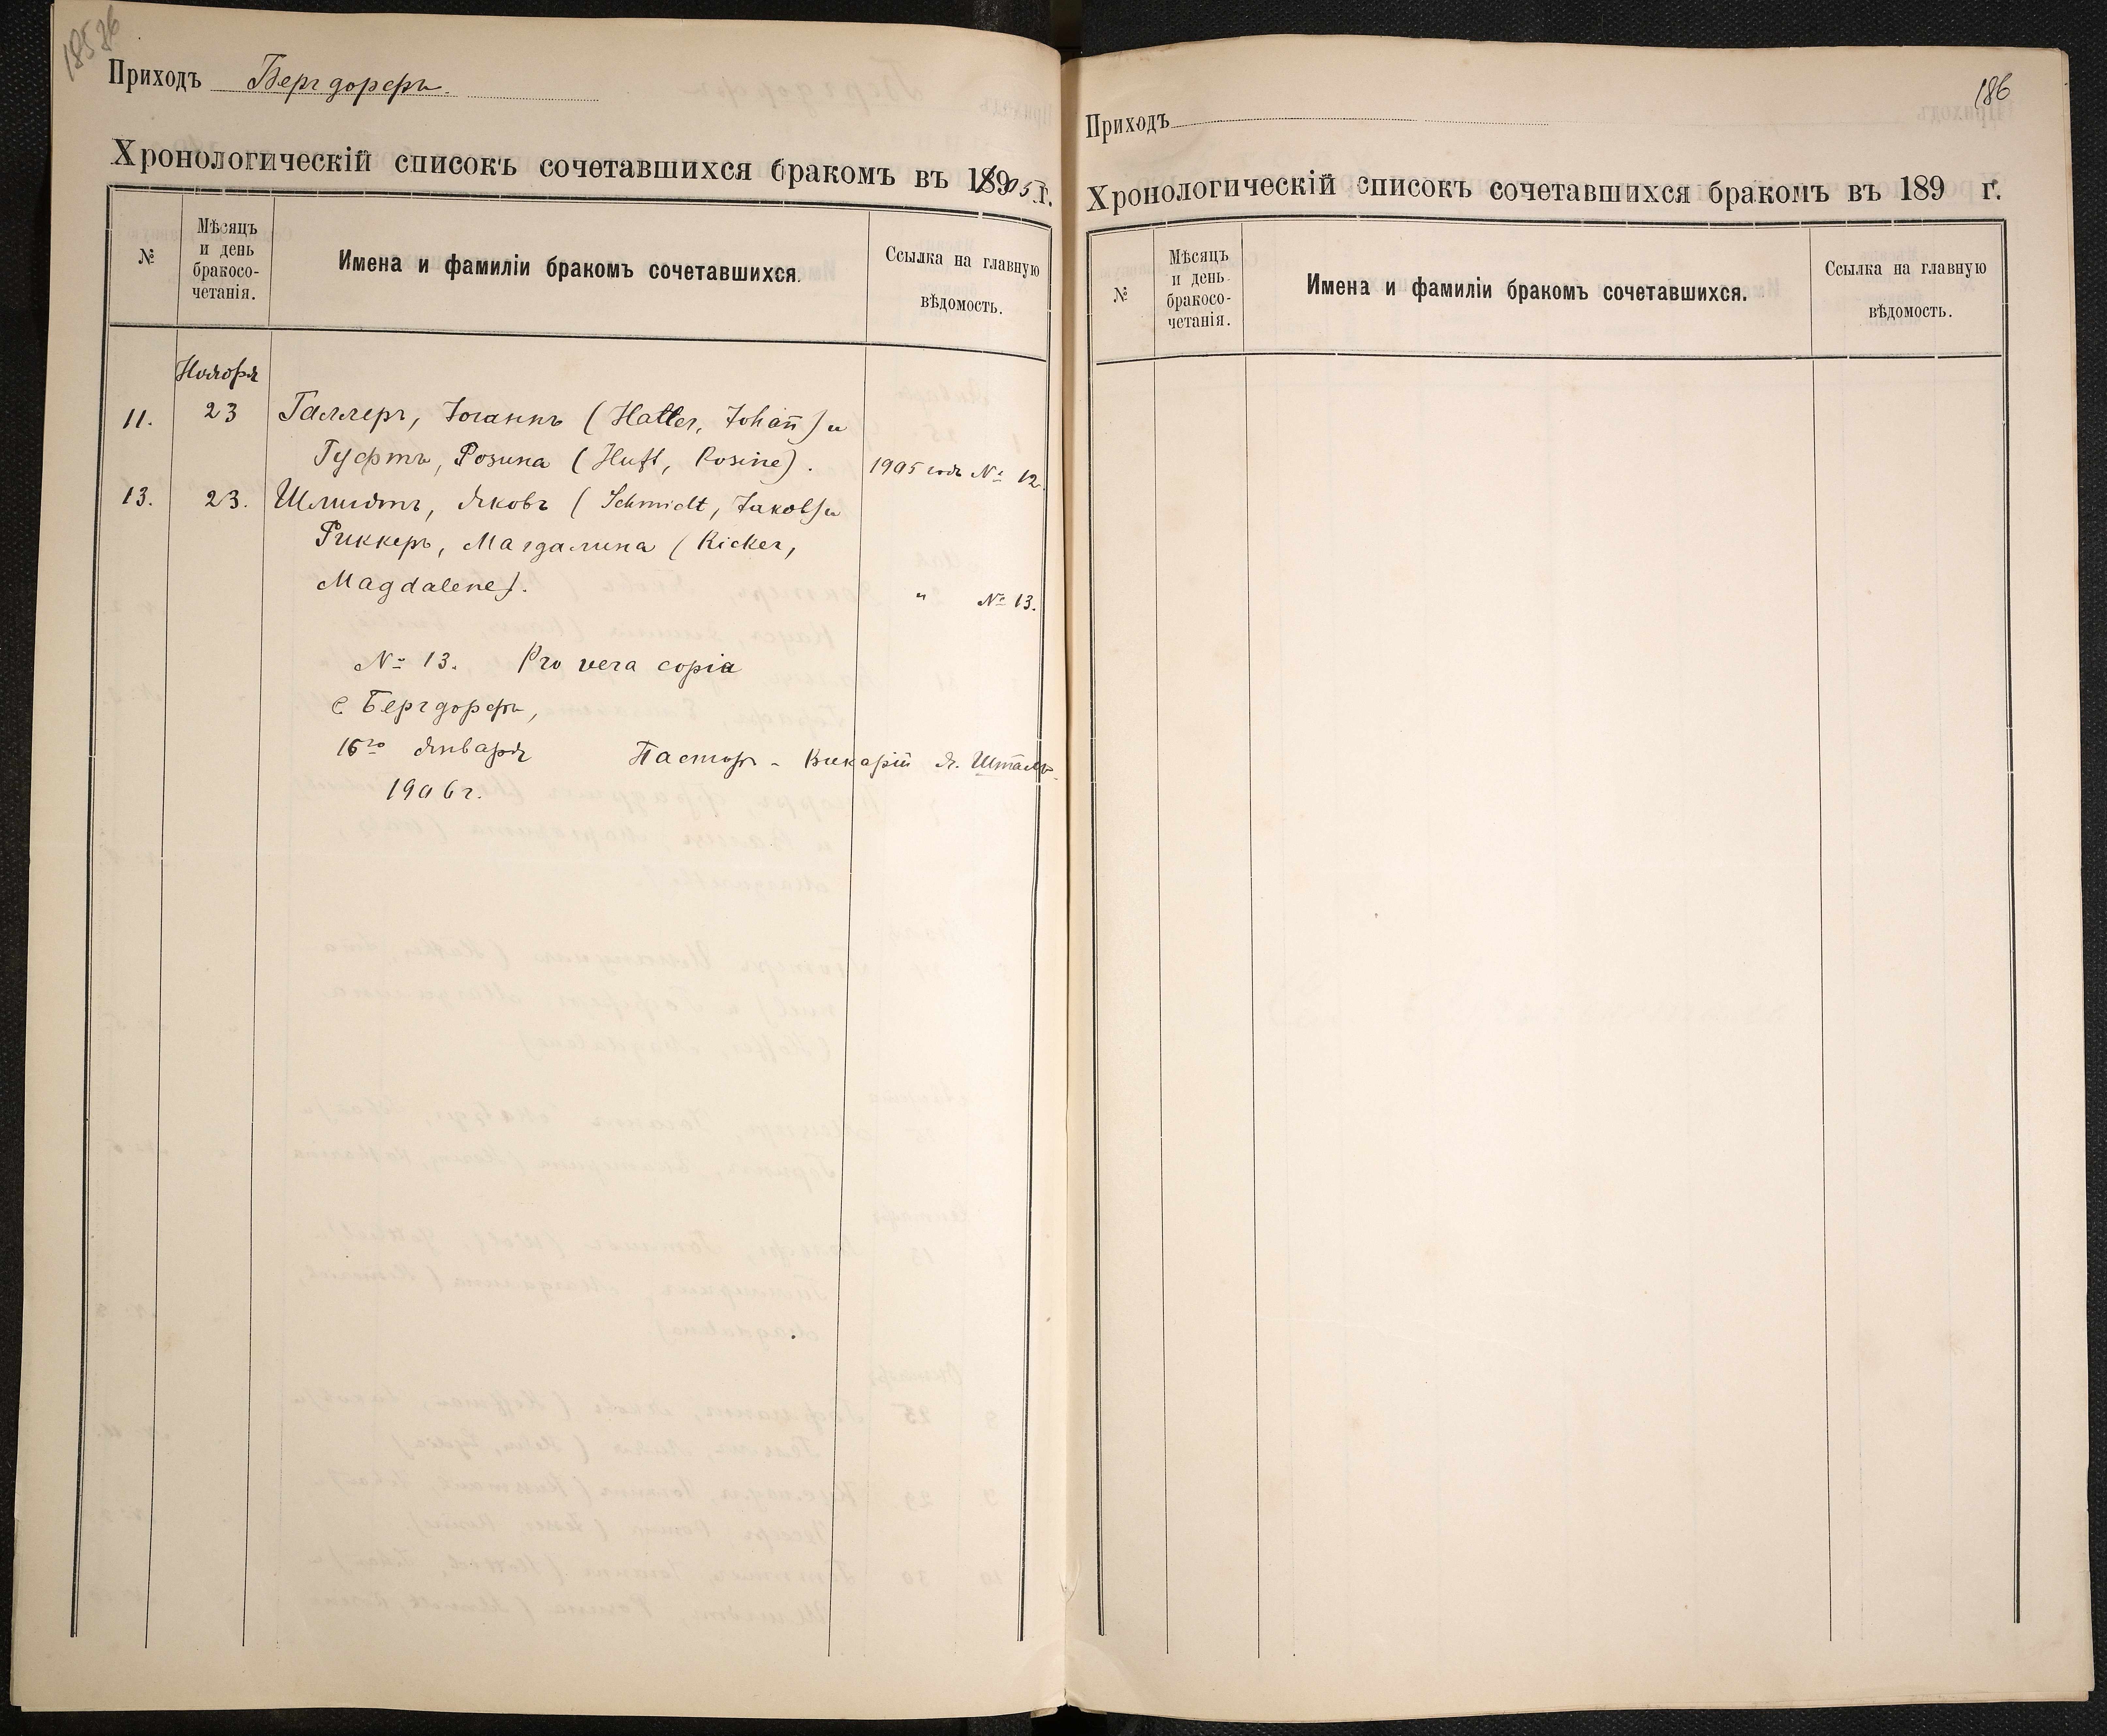 Приходъ Бергдорфъ.
Хронологическій списокъ сочетавшихся бракомъ въ 1905 г.
№
Мѣсяцъ
и день
бракосо-
четанія.
Имена и фамиліи бракомъ сочетавшихся.
Ссылка на главную
вѣдомость.
Ноября
11. 23 Галлеръ, Іоганнъ (Haller, Johan̄) и
Гуфтъ, Розина (Huft, Rosine). 1905 годъ № 12.
13. 23. Шмидтъ, Яковъ (Schmidt, Jakob) и
Риккеръ, Магдалина (Ricker,
Magdalene). " № 13.
№ 13. Pro vera copia
с Бергдорфъ,
16го Января Пасторъ-Викарій Я. Шталь.
1906 г.
186
Приходъ
Хронологическій списокъ сочетавшихся бракомъ въ 189 г.
№
Мѣсяцъ
и день
бракосо-
четанія.
Имена и фамиліи бракомъ сочетавшихся.
Ссылка на главную
вѣдомость.